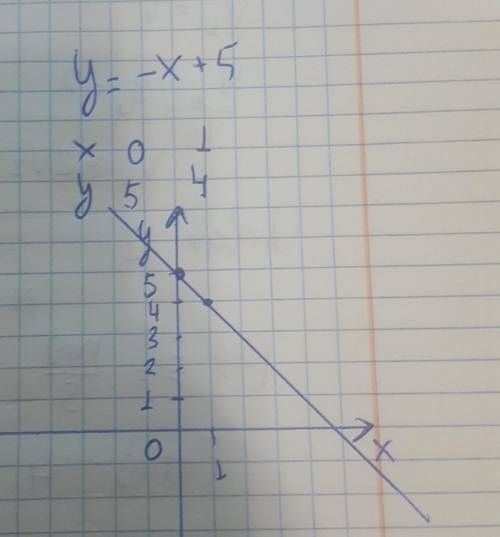 y = -x + 5
x 0 1
y 5 4
y
5
4
3
2
1
0 1 x